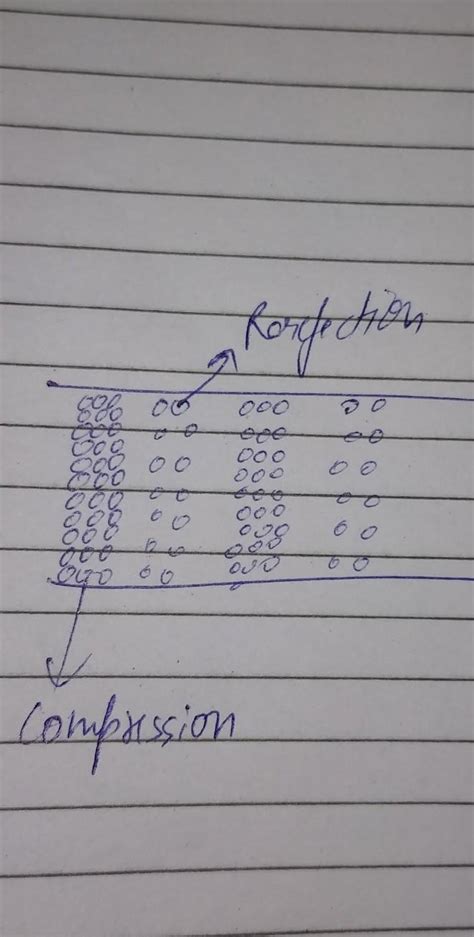 Rarefection
Compression